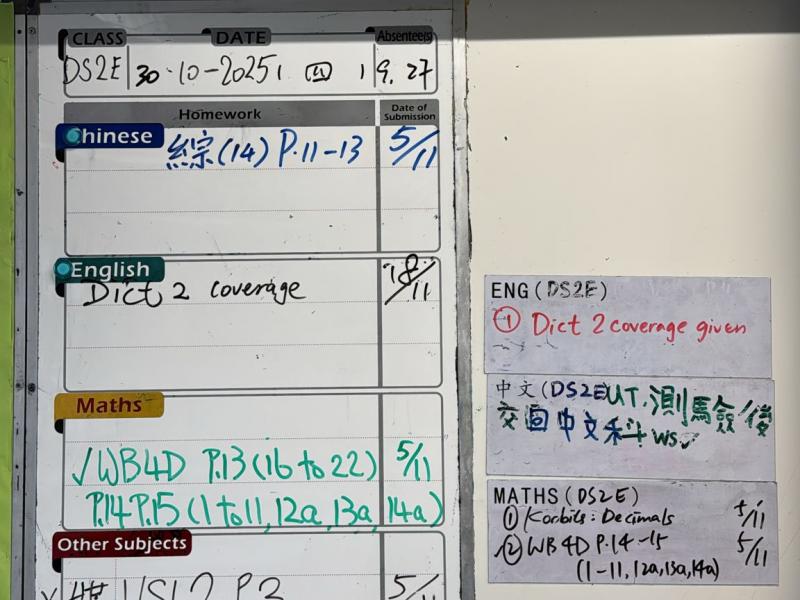 CLASS DATE Absentee(s)
DS2E 30·10-2025, 四 19, 27
Homework Date of Submission
Chinese
綜(14) P.11-13 5/11
English
Dict 2 coverage 18/11
Maths
✓WB4D P.13(16 to 22) 5/11
P.14 P.15 (1 to 11, 12a, 13a, 14a)
Other Subjects
P.2 5/11
ENG (DS2E)
① Dict 2 coverage given
中文 (DS2E) UT.測驗後
交回中文科 ws✓
MATHS (DS2E)
① Korbits: Decimals 5/11
② WB4D P.14-15 5/11
(1-11, 12a, 13a, 14a)